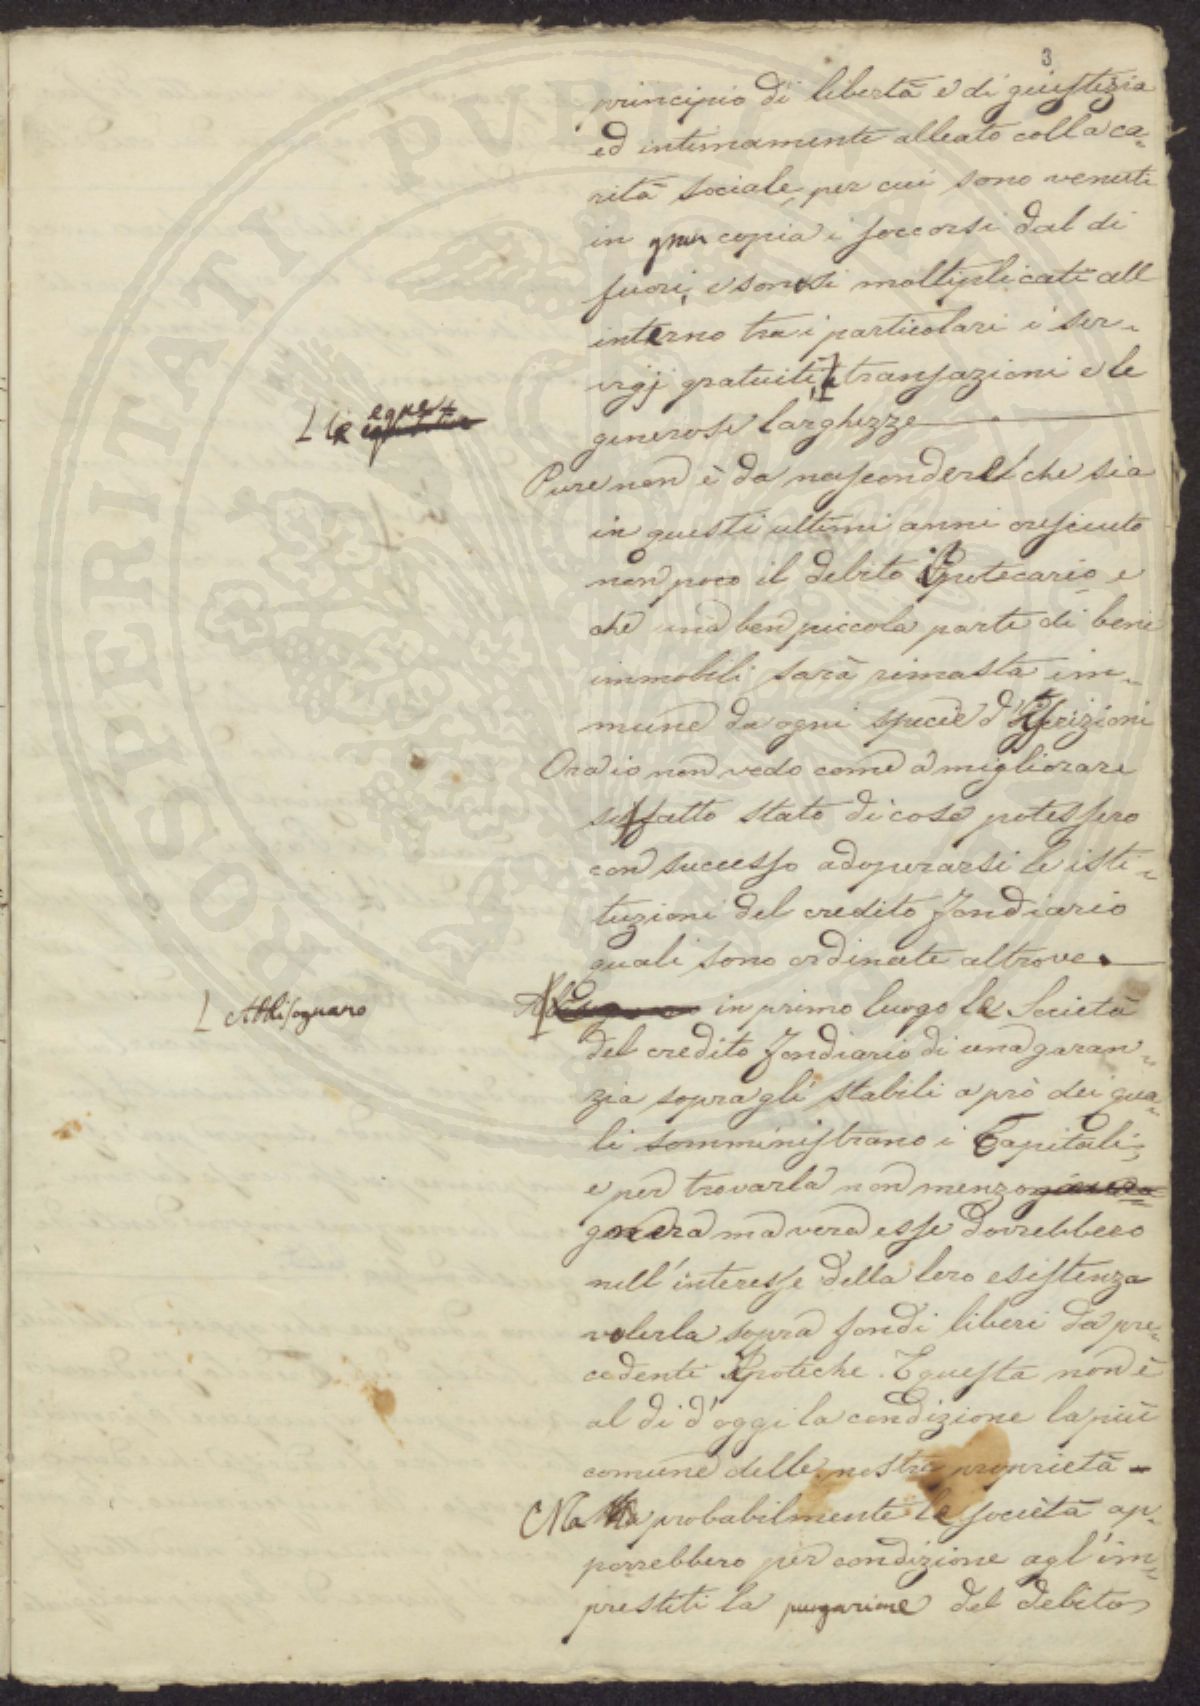 3
principio di libertà e di giustizia
ed intimamente alleato colla ca-
rità sociale, per cui sono venuti
in gran copia i soccorsi dal di
fuori, e sonosi moltiplicati all
interno tra i particolari i ser-
vigj gratuiti, transazioni e le
L le eque
generose larghezze
Pure non è da nascondersi che sia
in questi ultimi anni cresciuto
non poco il debito Ipotecario e
che una ben piccola parte di beni
immobili sarà rimasta im-
mune da ogni specie d'Iscrizioni
Ora io non vedo come a migliorare
siffatto stato di cose potessero
con successo adoperarsi le isti-
tuzioni del credito fondiario
quali sono ordinate altrove.
L Abbisognano
in primo luogo le Società
del credito fondiario di una garan-
zia sopra gli stabili a prò dei qua-
li somministrano i Capitali;
e per trovarla non menzo
gnera ma vera esse dovrebbero
nell'interesse della loro esistenza
volerla sopra fondi liberi da pre-
cedenti Ipoteche. E questa non è
al di d'oggi la condizione la più
comune delle nostre proprietà -
Ma probabilmente le società ap-
porrebbero per condizione agl'im-
prestiti la purgazione del debito
PROSPERITATI PVBLICAE